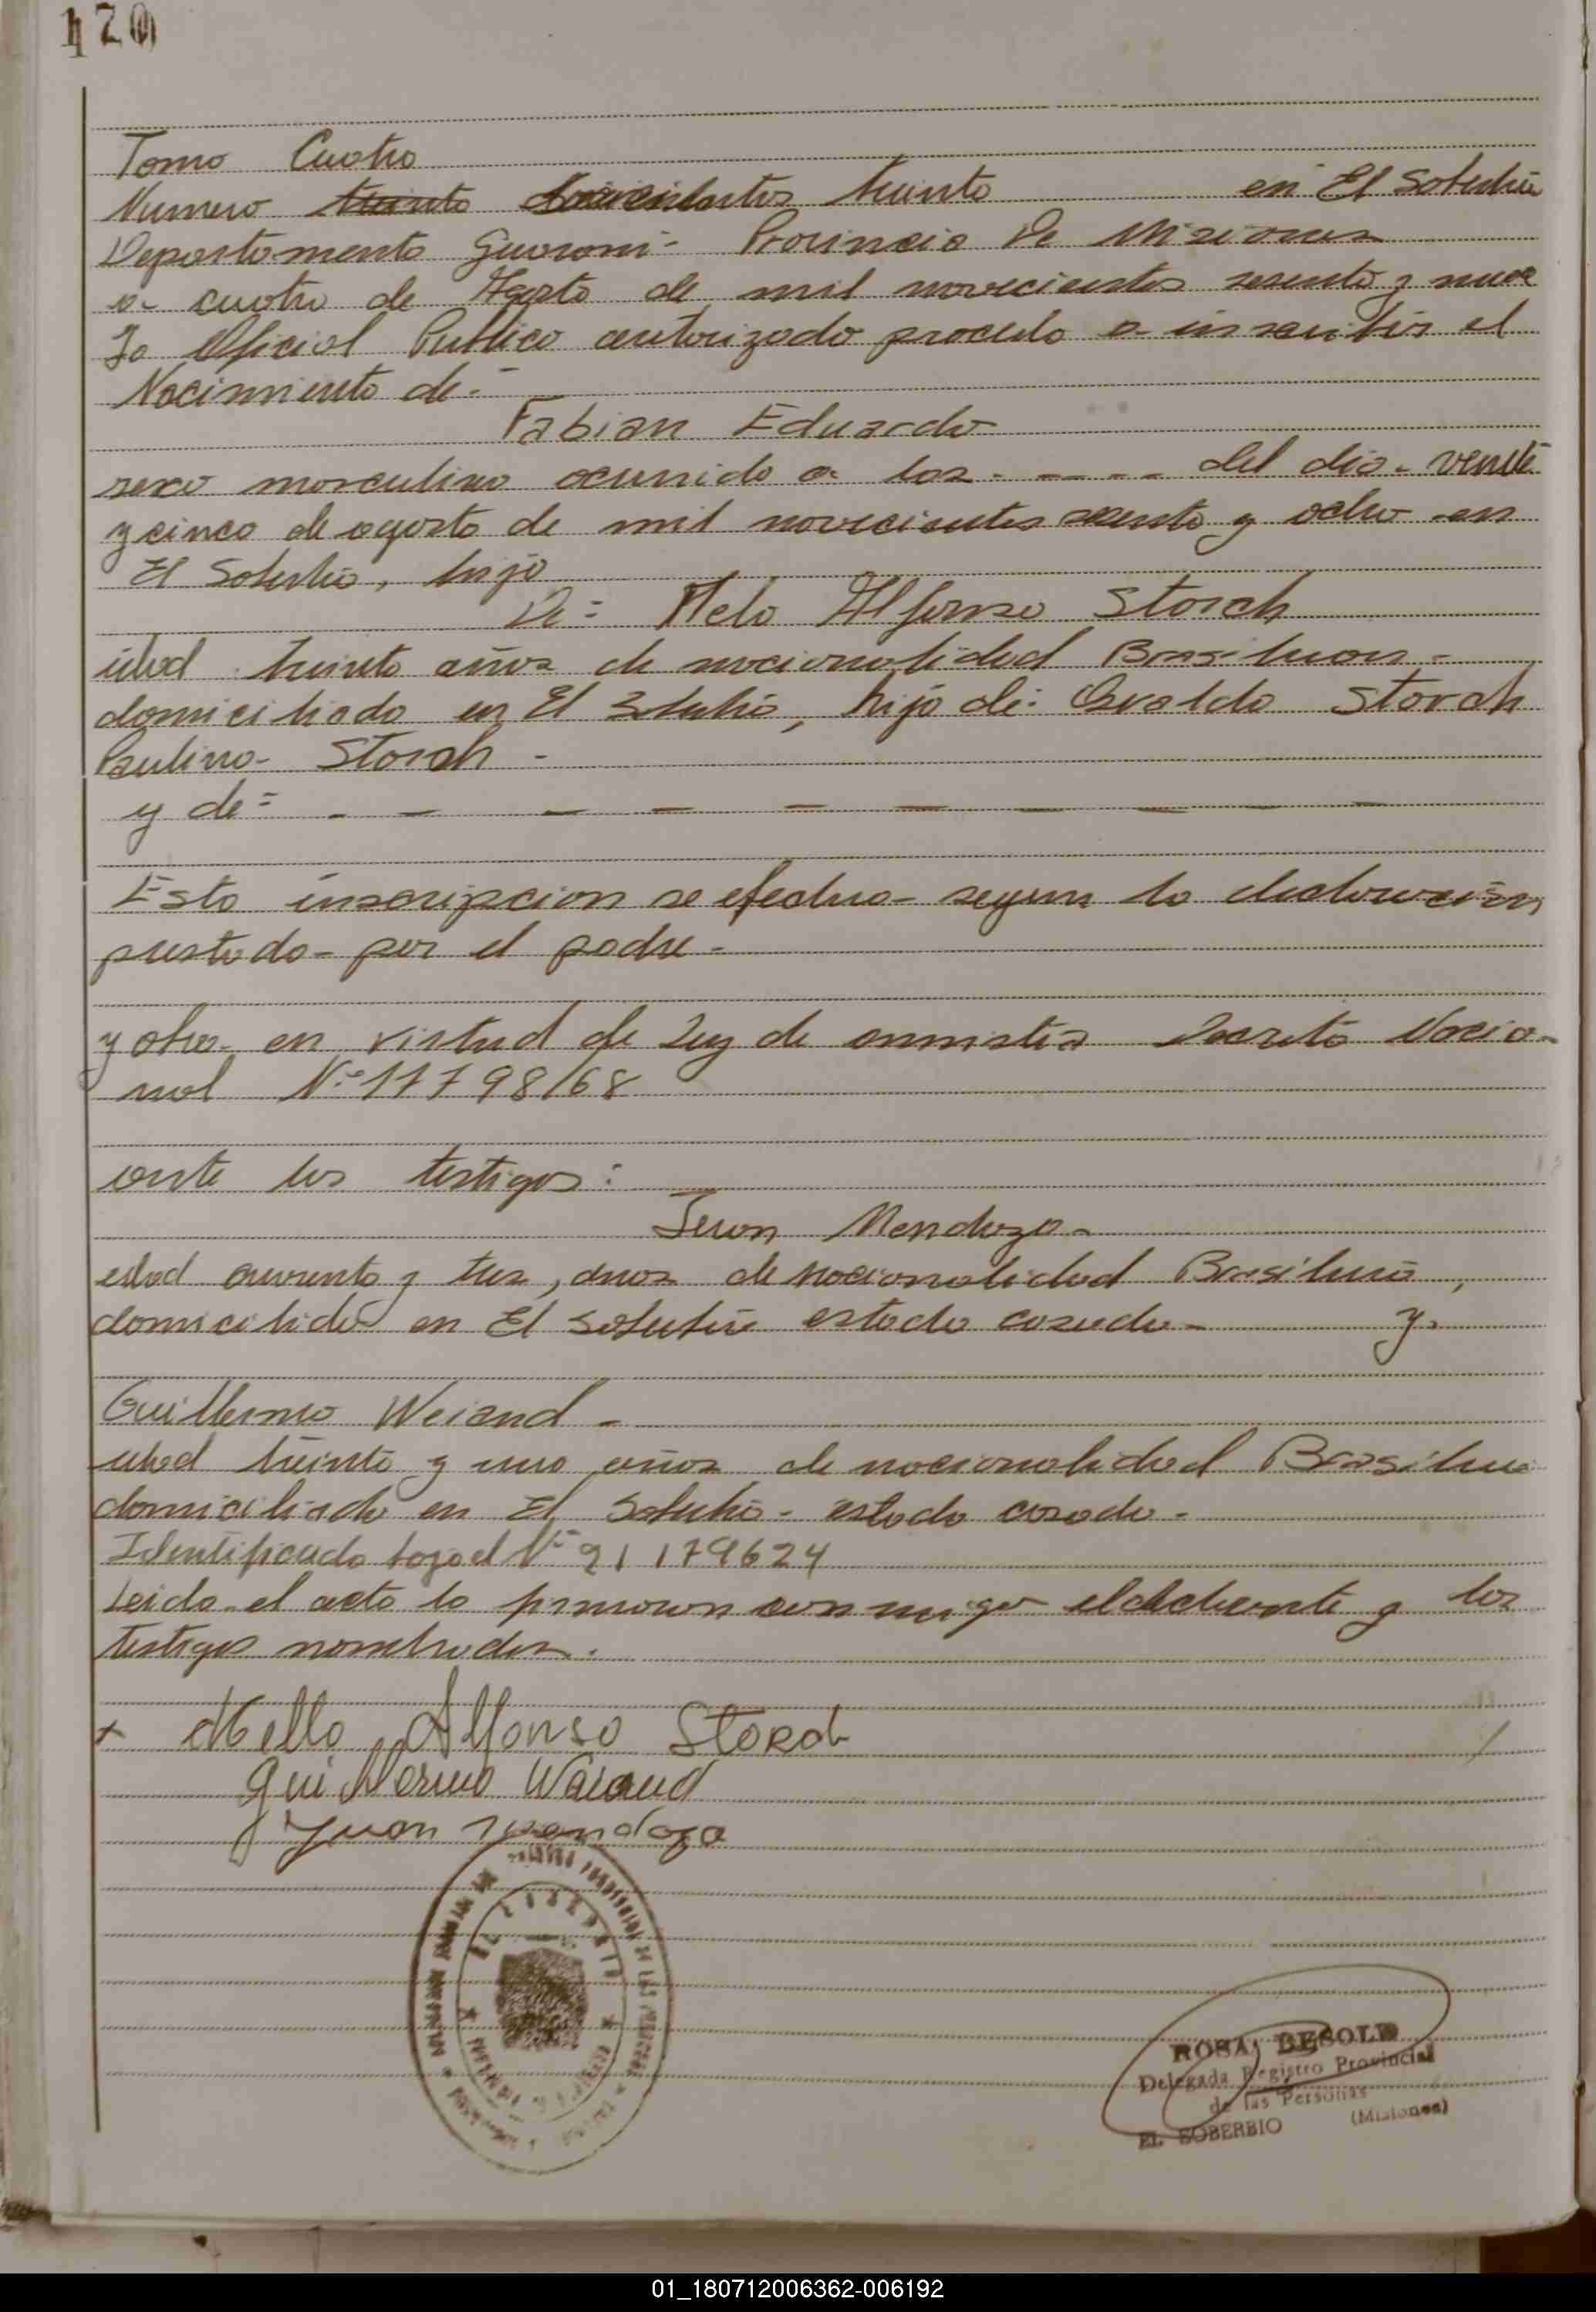 120
Tomo Cuatro
Numero treinta Seiscientos treinta en El Soberbio
Departamento Guarani- Provincia De Misiones
a- cuatro de Agosto de mil novecientos sesenta y nueve
Yo Oficial Publico autorizado procedo a- inscribir el
Nacimiento de-
Fabian Eduardo
sexo masculino ocurrido a las - - - - - del dia - venti
y cinco de agosto de mil novecientos sesenta y ocho -en
El Soberbio, hijo
De= Melo Alfonso Storch
edad treinta años de nacionalidad Brasilera -
domiciliado en El Soberbio, hijo de: Osvaldo Storch
Paulina- Storch -
y de= - - - - - - - - - -
Esta inscripcion se efectua- segun la declaracion
prestada- por el padre -
y otro- en virtud de Ley de amnistia Decreto Nacio-
nal N° 17798/68
ante los testigos:
Juan Mendoza-
edad cuarenta y tres, años de nacionalidad Brasilera,
domicilido en El Soberbio estado casado - y-
Guillermo Weiand -
edad treinta y uno años de nacionalidad Brasilera
domiciliado en El Soberbio - estado casado -
Identificado N° 21179624
Leida - el acta la firmaron conmigo el declarante y los
testigos nombrados.
x Mello Alfonso Storch
Guillermo Waiand
Juan Mendoza
EL SOBERBIO
ROSA DESOLD
Delegada Registro Provincial
de las Personas
EL SOBERBIO (Misiones)
01_180712006362-006192